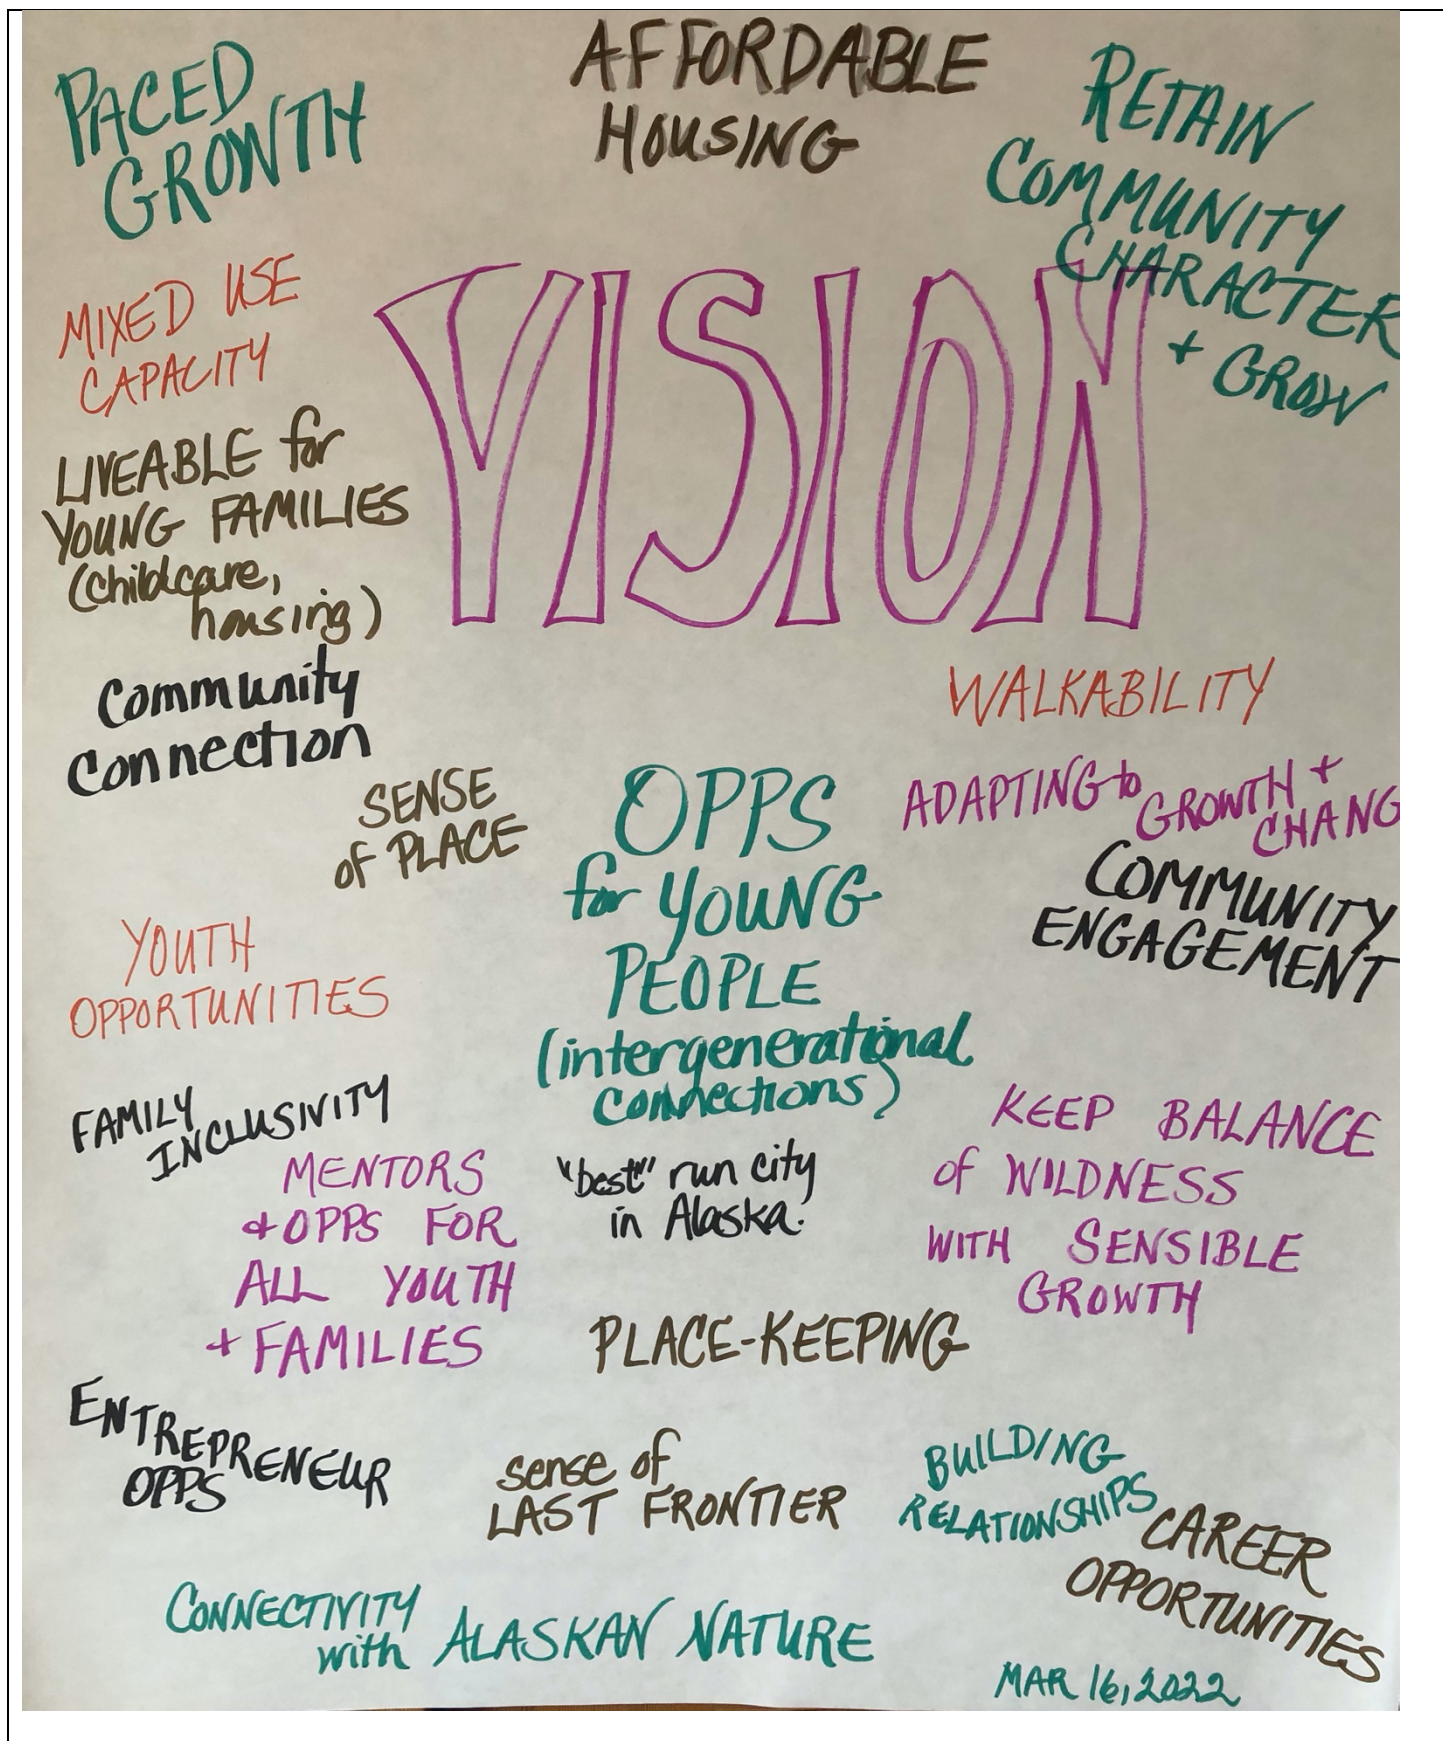 PACED
GROWTH
AFFORDABLE
HOUSING
RETAIN
COMMUNITY
CHARACTER
+ GROW
MIXED USE
CAPACITY
VISION
LIVEABLE for
YOUNG FAMILIES
(childcare,
housing)
Community
Connection
WALKABILITY
SENSE
of PLACE
OPPS
for YOUNG
PEOPLE
(intergenerational
connections)
ADAPTING to
GROWTH +
CHANG
COMMUNITY
ENGAGEMENT
YOUTH
OPPORTUNITIES
FAMILY
INCLUSIVITY
MENTORS
+ OPPS FOR
ALL YOUTH
+ FAMILIES
"best" run city
in Alaska.
KEEP BALANCE
of WILDNESS
WITH SENSIBLE
GROWTH
PLACE-KEEPING
ENTREPRENEUR
OPPS
sense of
LAST FRONTIER
BUILDING
RELATIONSHIPS
CAREER
OPPORTUNITIES
CONNECTIVITY
with ALASKAN NATURE
MAR 16, 2022